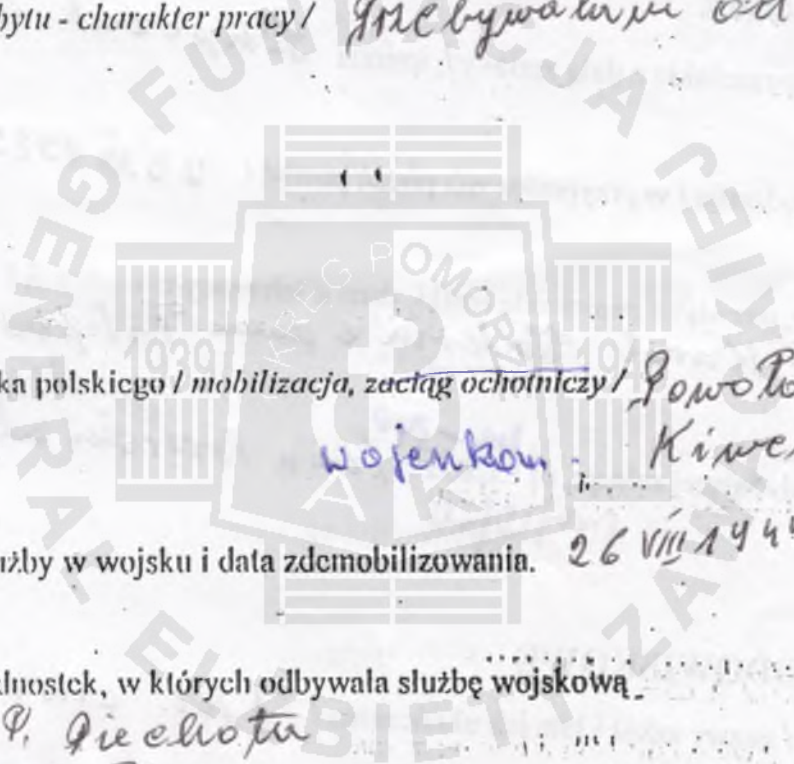 bytu - charakter pracy /
ka polskiego / mobilizacja, zaciąg ochotniczy / Powoła
wojenkom.
użby w wojsku i data zdemobilizowania. 26 VIII 1944
dnostek, w których odbywała służbę wojskową
P. Piechota
FUNDACJA GENERAŁ ELŻBIETY ZAWACKIEJ
OKRĘG POMORZE
1939
AK